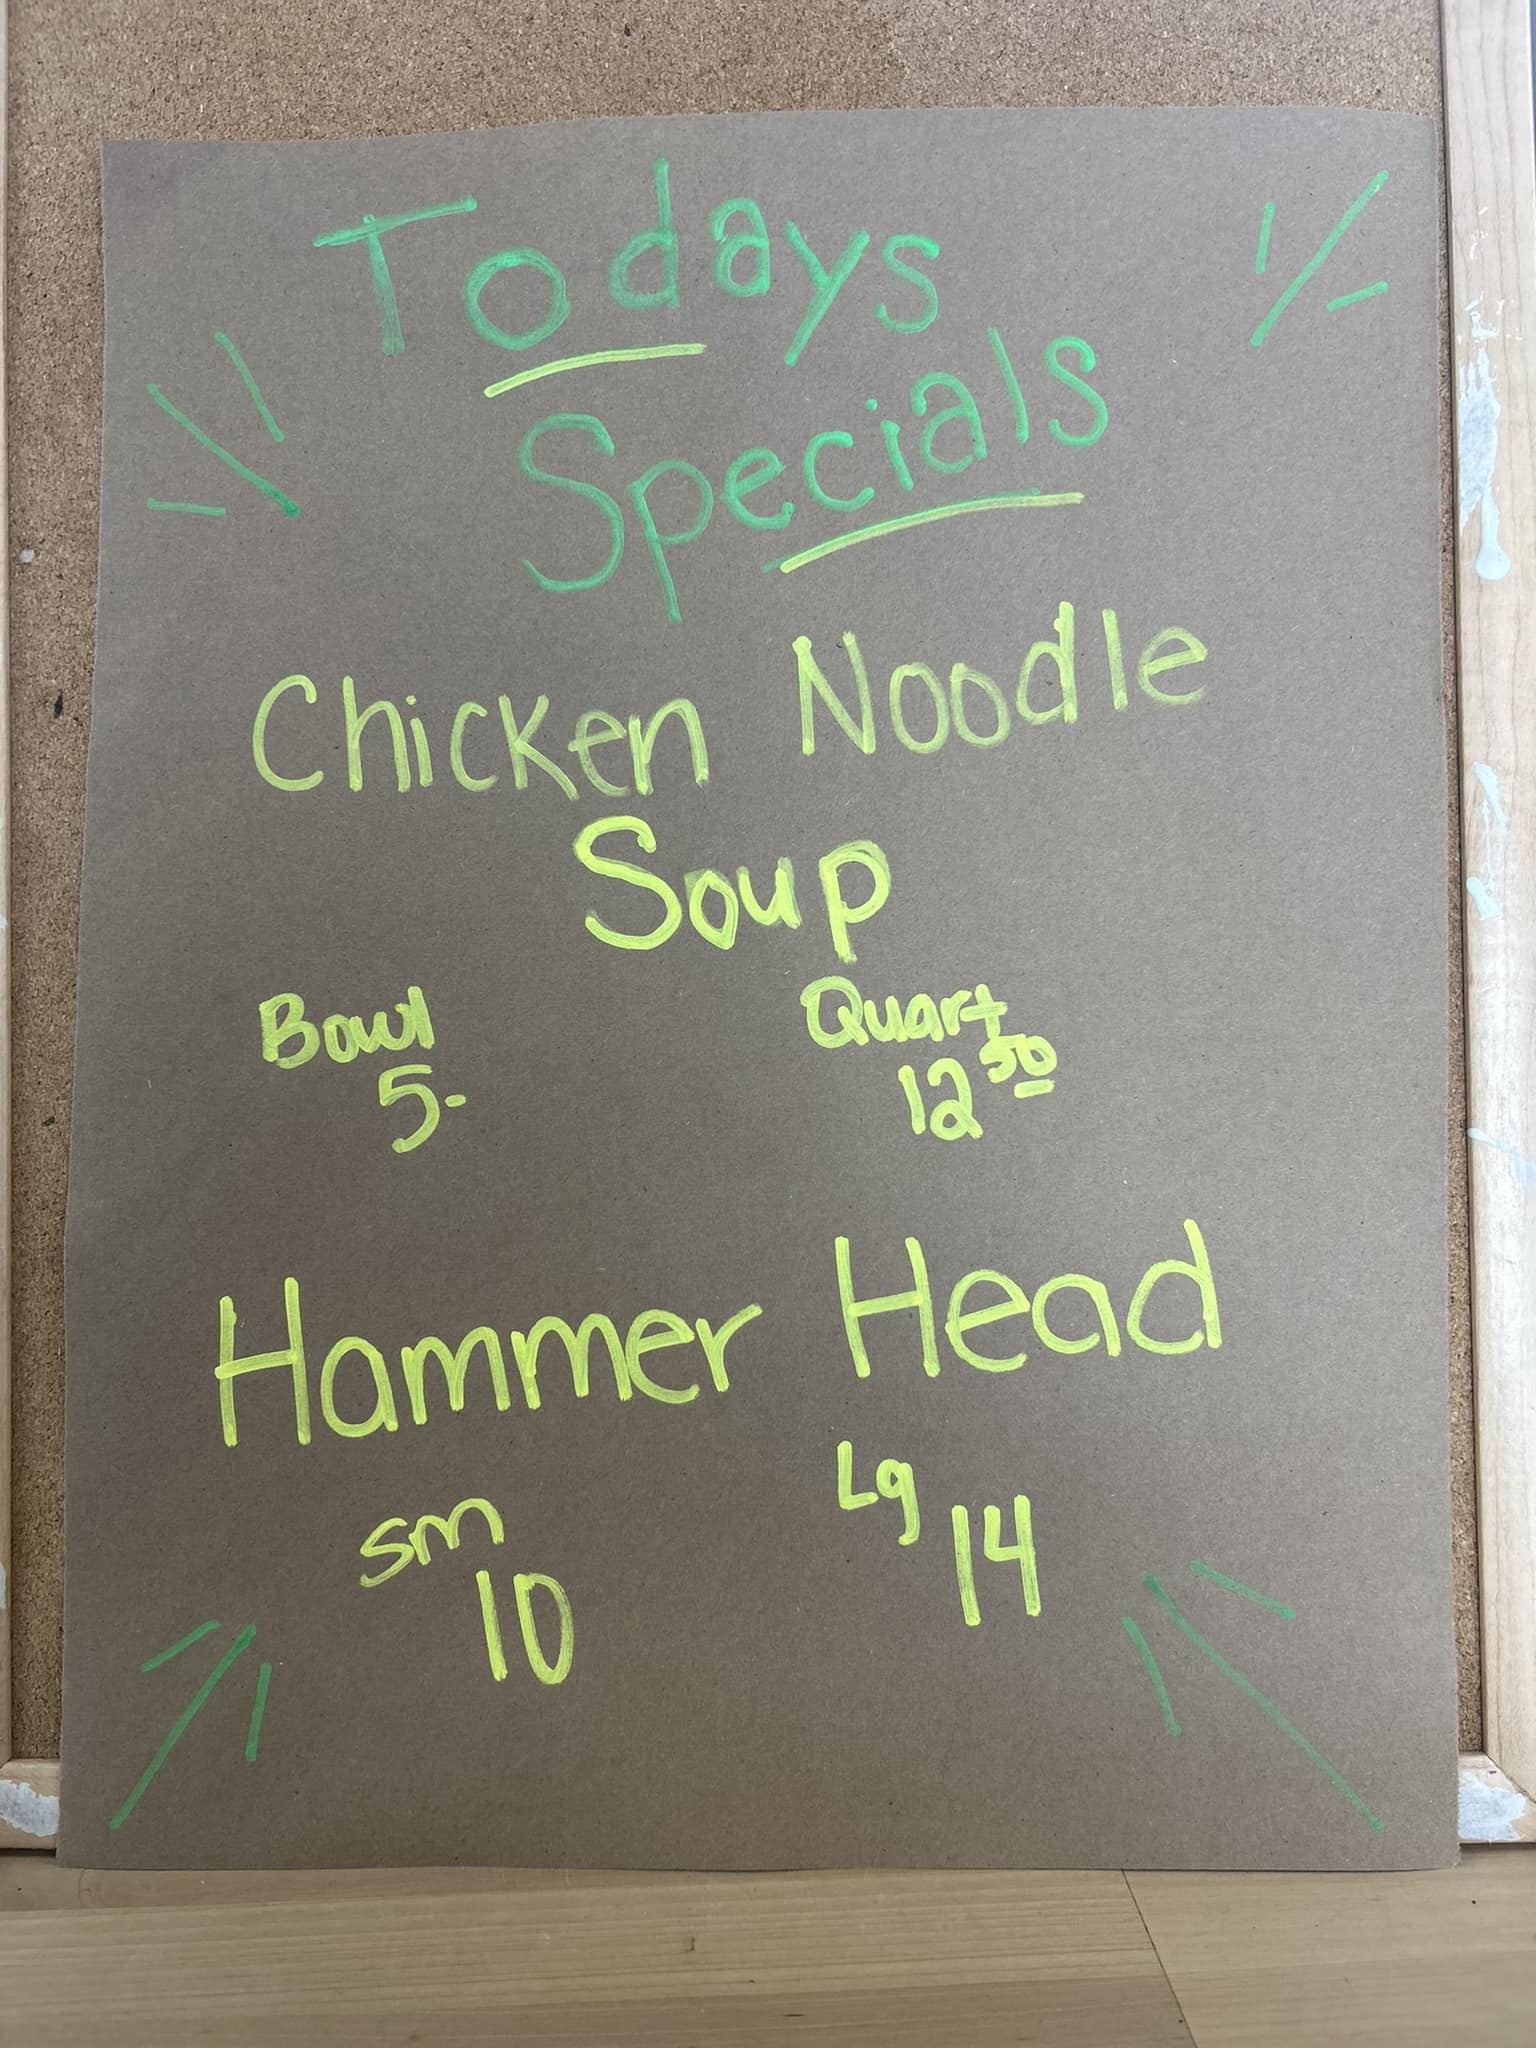 Todays
Specials
Chicken Noodle
Soup
Bowl Quart
5- 12 50
Hammer Head
Sm Lg
10 14